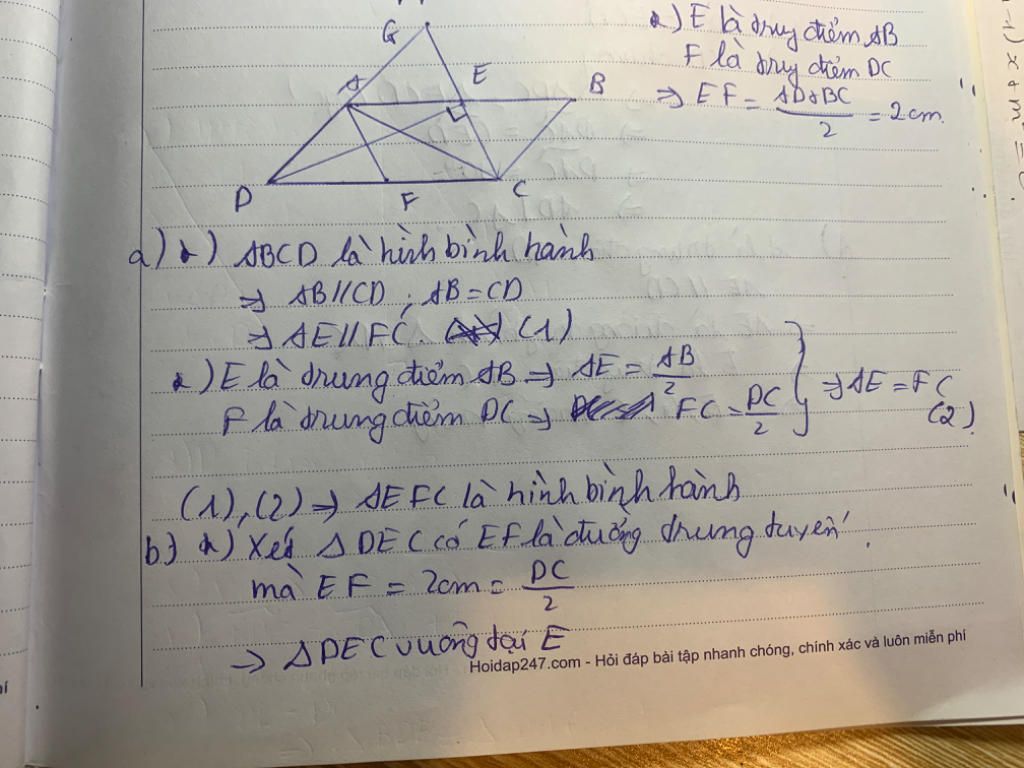 G
A
E
B
D
F
C
*) E là truy điểm AB
F là truy điểm DC
=> EF = AD+BC / 2 = 2cm.
a) *) ABCD là hình bình hành
=> AB//CD ; AB=CD
=> AE//FC. (1)
*) E là trung điểm AB => AE = AB/2
F là trung điểm DC => FC = DC/2
=> AE = FC (2)
(1),(2) => AEFC là hình bình hành
b) *) Xét Δ DEC có EF là đường trung tuyến
mà EF = 2cm = DC/2
=> Δ DEC vuông tại E
Hoidap247.com - Hỏi đáp bài tập nhanh chóng, chính xác và luôn miễn phí